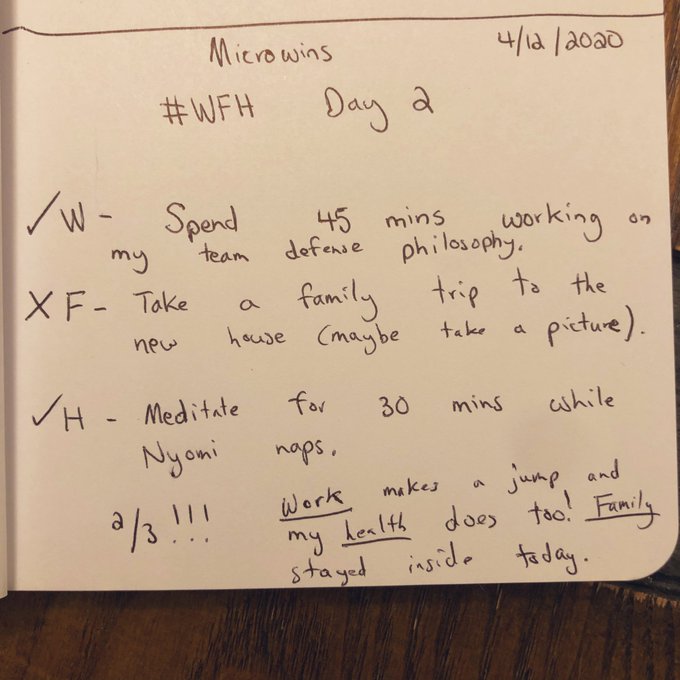 Microwins 4/12/2020
#WFH Day 2
✓ W - Spend 45 mins working on
my team defense philosophy.
X F - Take a family trip to the
new house (maybe take a picture).
✓ H - Meditate for 30 mins while
Nyomi naps.
2/3 !!! Work makes a jump and
my health does too! Family
stayed inside today.